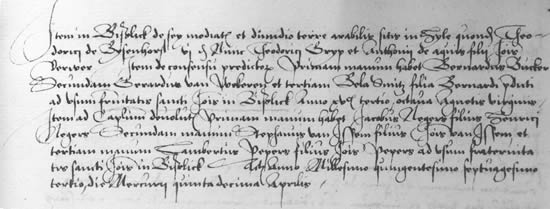 Item in Bislick de sex modiatis et dimidio terre arabilis sitis in Zyle quond Theo
dorici de Eysenhorst vj d Nunc Theodorici Gryp et Anthonii de aquis filii Jois
Verwer Item de consensu predictor Primam manum habet Bernardus Bucker
Secundam Gerardus van Weberen et tertiam Bela Smitz filia Bernardi pditi
ad usum frnitatis sancti Jois in Bislick Anno tertio, octava Agnetis virginis
Item ad Capitulum devoluti Primam manum habet Jacobus Negers filius Henrici
Negers Secundam manum Stephanus van Issem filius Jois van Issem et
tertiam manum Lambertus Peypers filius Jois Peypers ad usum fraternita
tis sancti Jois in Bislick Anno Millesimo quingentesimo septuagesimo
tertio, die Mercurii quinta decima Aprilis